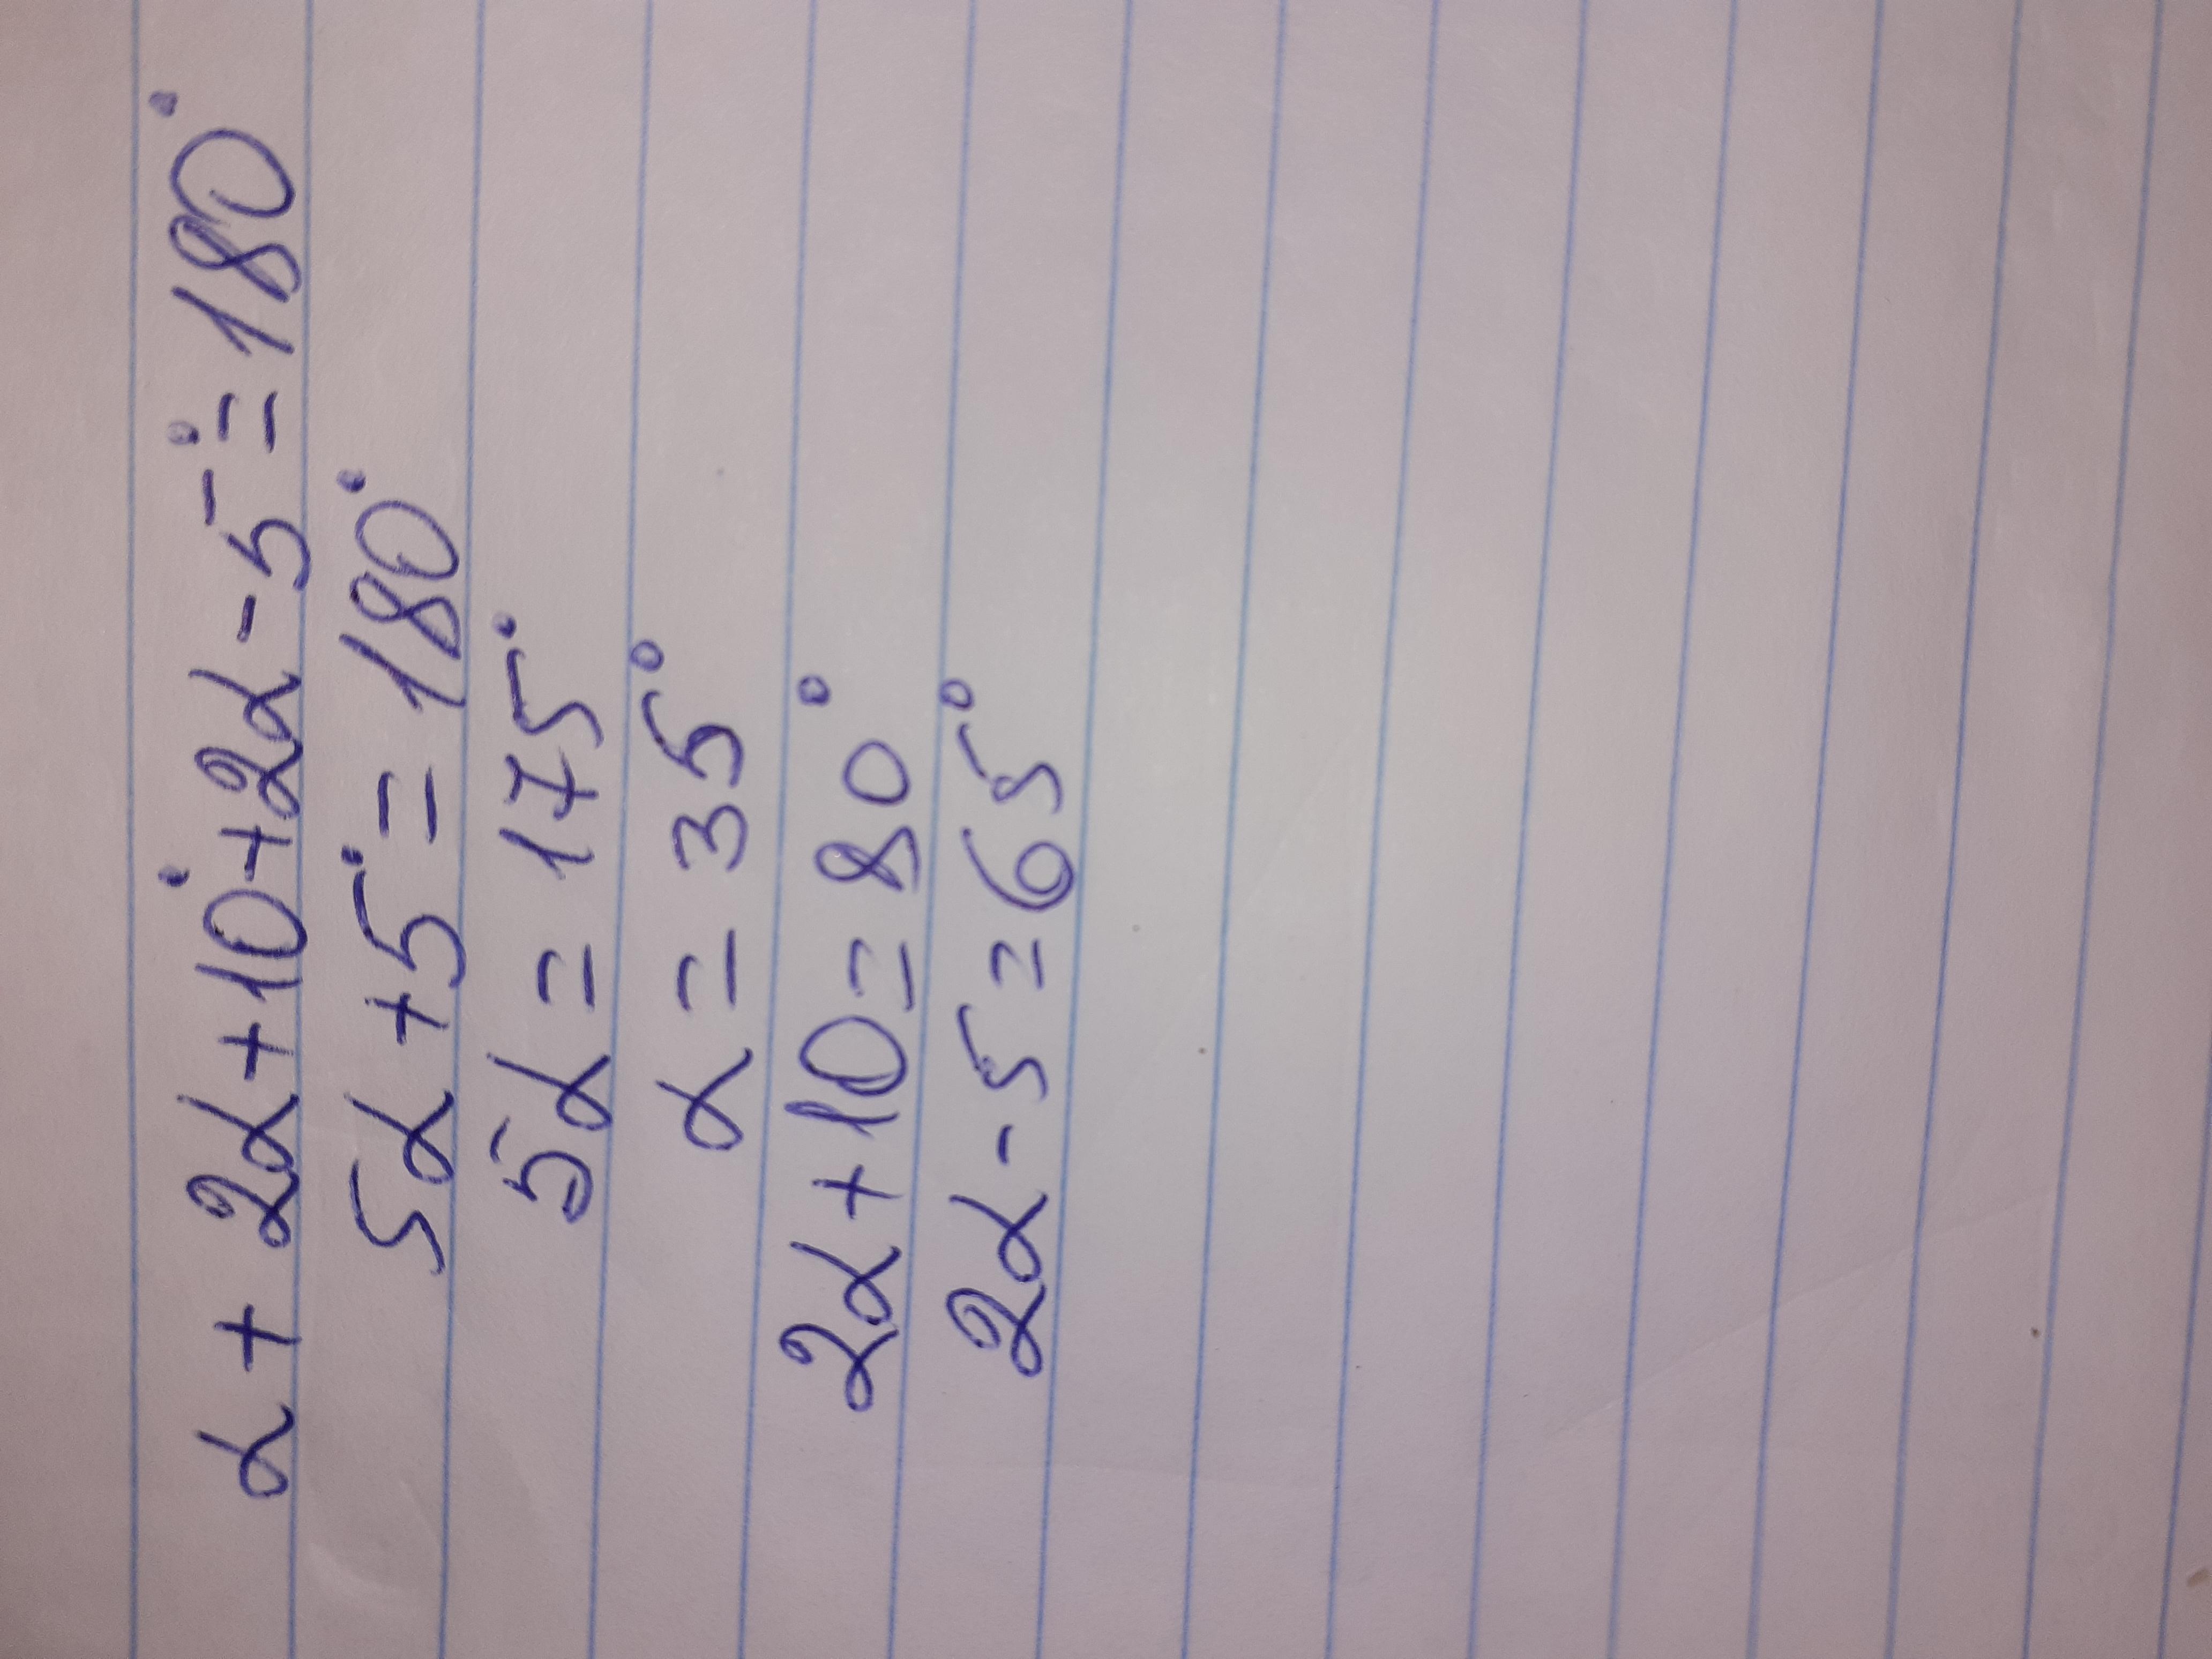 α + 2α + 10° + 2α - 5° = 180°
5α + 5° = 180°
5α = 175°
α = 35°
2α + 10 = 80°
2α - 5 = 65°